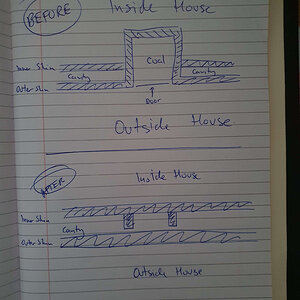 BEFORE
Inside House
Inner Skin
Coal
Cavity
Cavity
Outer Skin
Door
Outside House
AFTER
Inside House
Inner Skin
Cavity
Outer Skin
Outside House